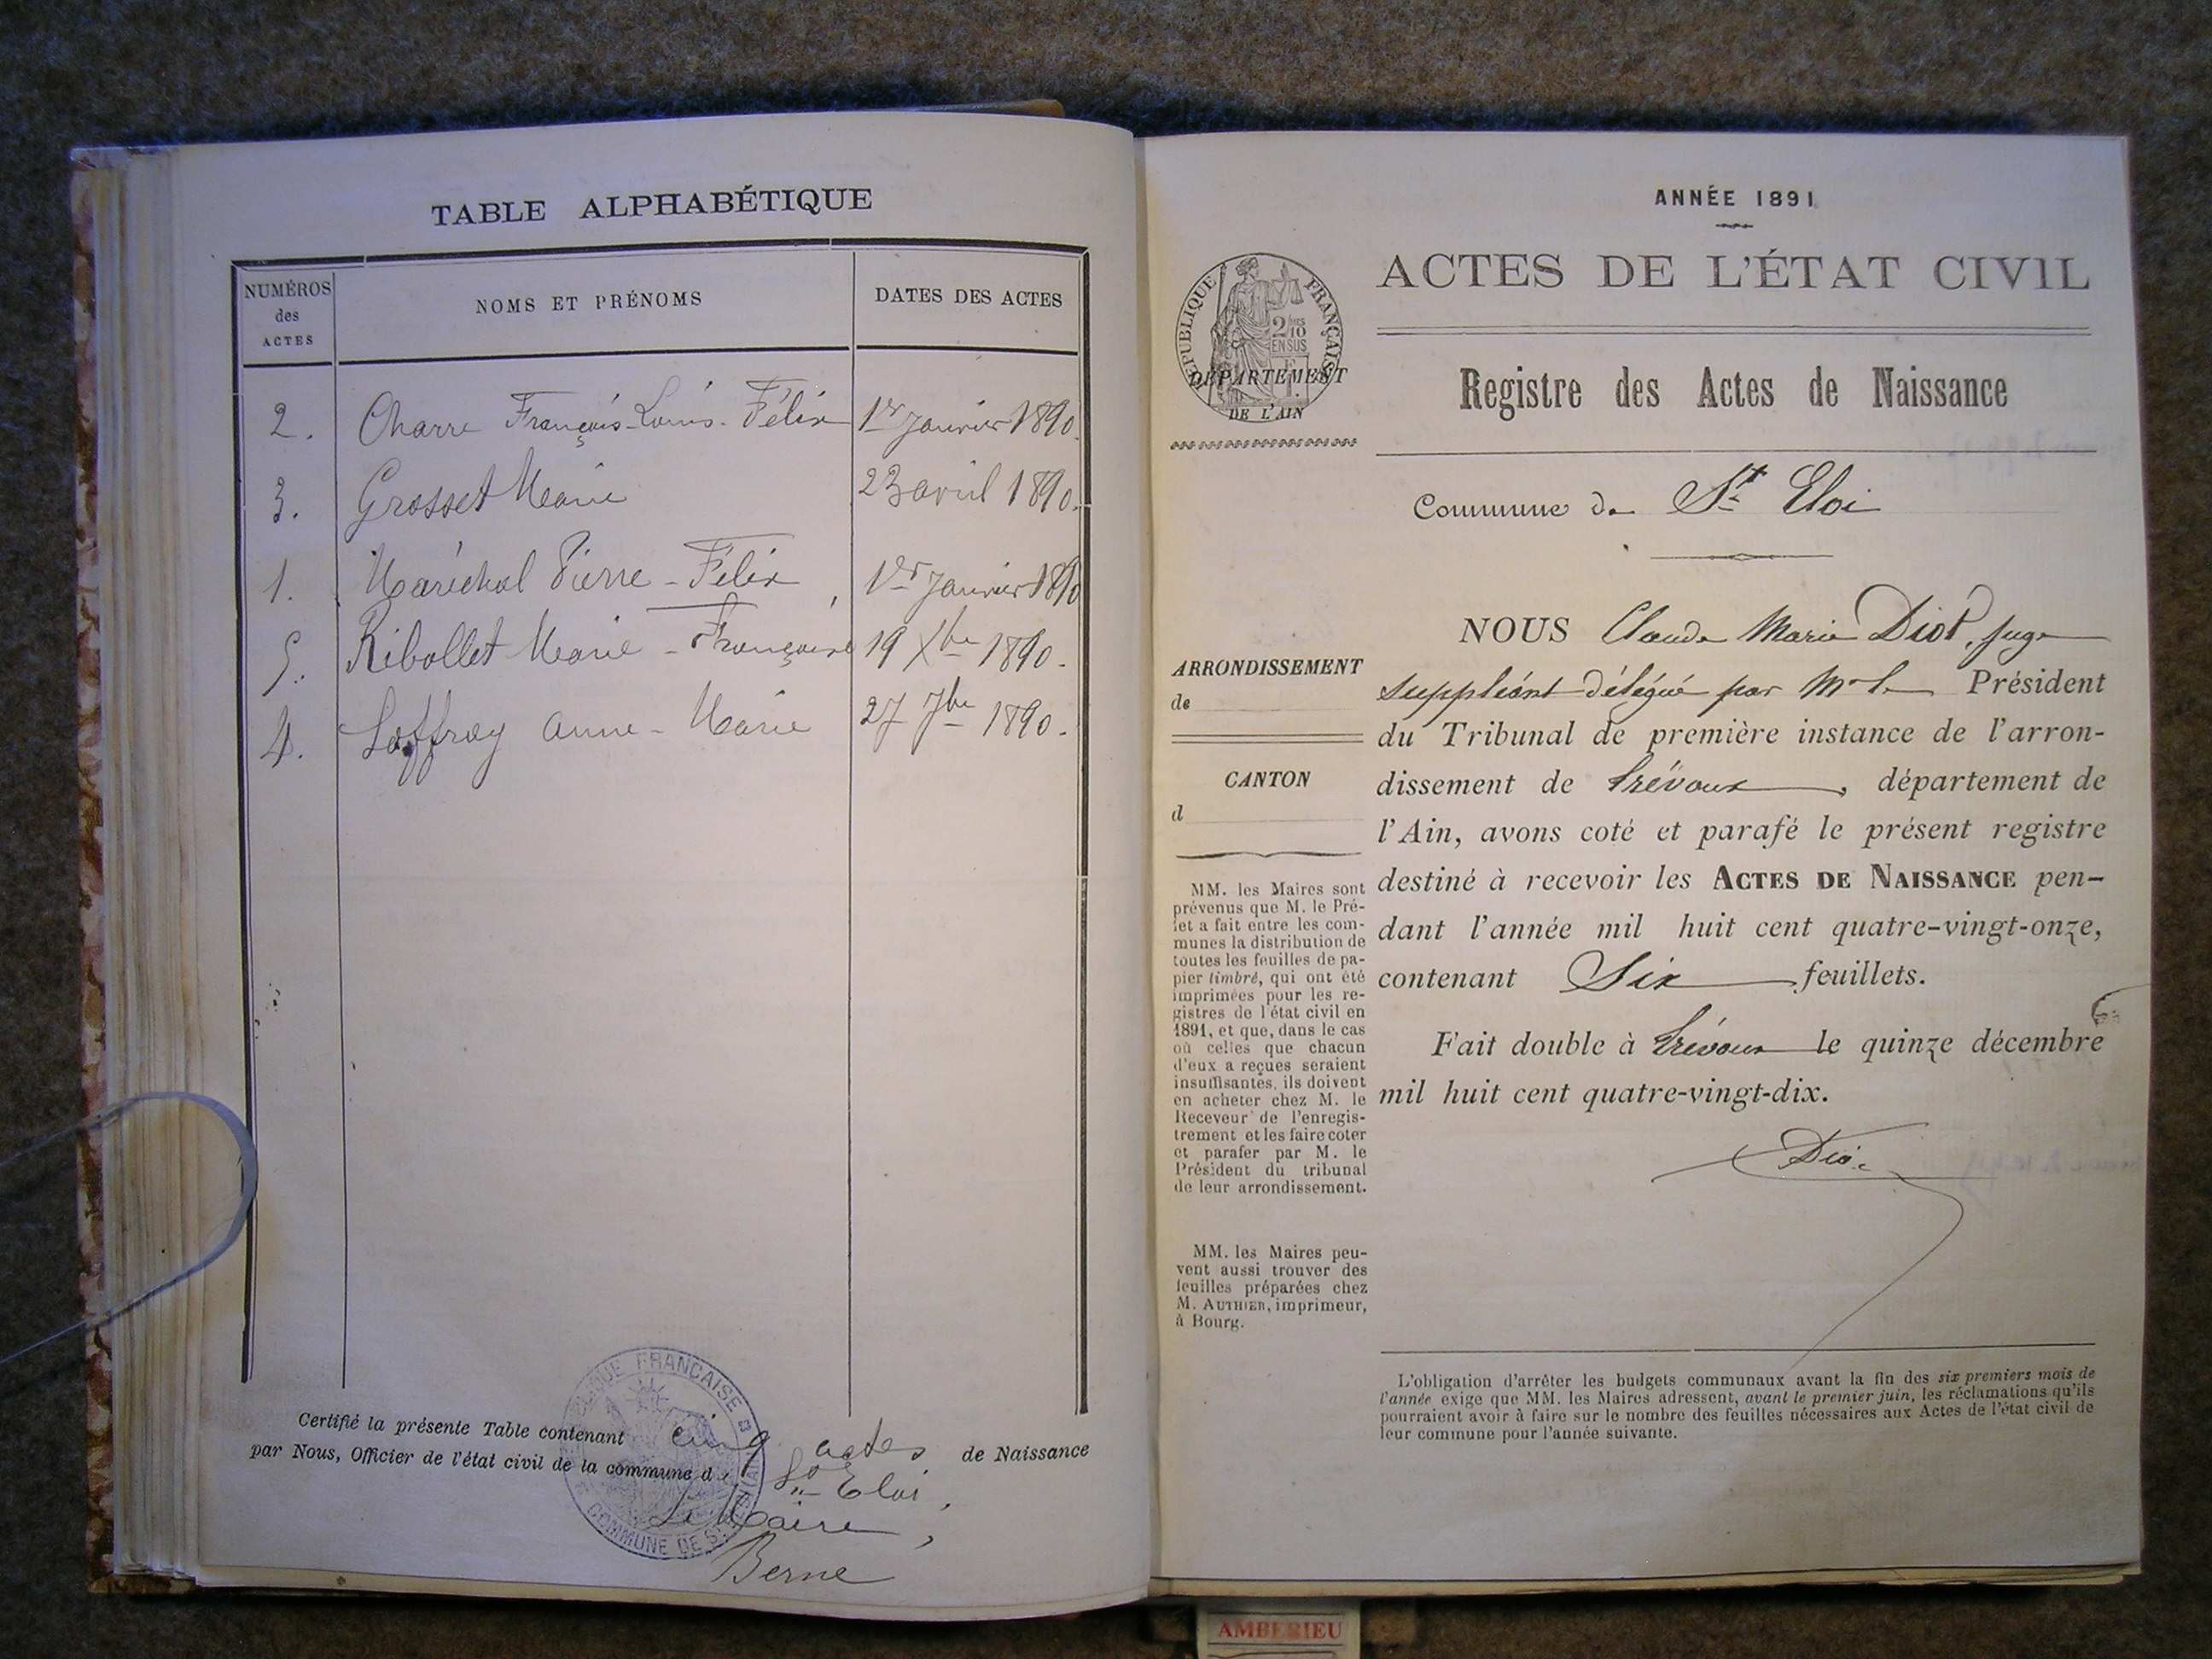 TABLE ALPHABÉTIQUE
NUMÉROS des ACTES
NOMS ET PRÉNOMS
DATES DES ACTES
2. Charre François-Louis-Félix 1er Janvier 1890.
3. Grosset Marie 23 avril 1890.
1. Maréchal Pierre-Félix, 1er Janvier 1890
5. Ribollet Marie-Françoise 19 Xbre 1890.
4. Soffray Anne-Marie 27 7bre 1890.
Certifié la présente Table contenant cinq actes de Naissance
par Nous, Officier de l'état civil de la commune d St Eloi,
Le Maire,
Berne
RÉPUBLIQUE FRANÇAISE
COMMUNE DE S
ANNÉE 1891
ACTES DE L'ÉTAT CIVIL
RÉPUBLIQUE FRANÇAISE
2/10 EN SUS
DÉPARTEMENT
DE L'AIN
Registre des Actes de Naissance
Commune de St Eloi
ARRONDISSEMENT
de
CANTON
d
MM. les Maires sont
prévenus que M. le Pré-
fet a fait entre les com-
munes la distribution de
toutes les feuilles de pa-
pier timbré, qui ont été
imprimées pour les re-
gistres de l'état civil en
1891, et que, dans le cas
où celles que chacun
d'eux a reçues seraient
insuffisantes, ils doivent
en acheter chez M. le
Receveur de l'enregis-
trement et les faire coter
et parafer par M. le
Président du tribunal
de leur arrondissement.
MM. les Maires peu-
vent aussi trouver des
feuilles préparées chez
M. AUTHIER, imprimeur,
à Bourg.
NOUS Claude Marie Diot, juge
suppléant délégué par Mr le Président
du Tribunal de première instance de l'arron-
dissement de Trévoux, département de
l'Ain, avons coté et parafé le présent registre
destiné à recevoir les ACTES DE NAISSANCE pen-
dant l'année mil huit cent quatre-vingt-onze,
contenant Six feuillets.
Fait double à Trévoux le quinze décembre
mil huit cent quatre-vingt-dix.
Diot
L'obligation d'arrêter les budgets communaux avant la fin des six premiers mois de
l'année exige que MM. les Maires adressent, avant le premier juin, les réclamations qu'ils
pourraient avoir à faire sur le nombre des feuilles nécessaires aux Actes de l'état civil de
leur commune pour l'année suivante.
AMBERIEU